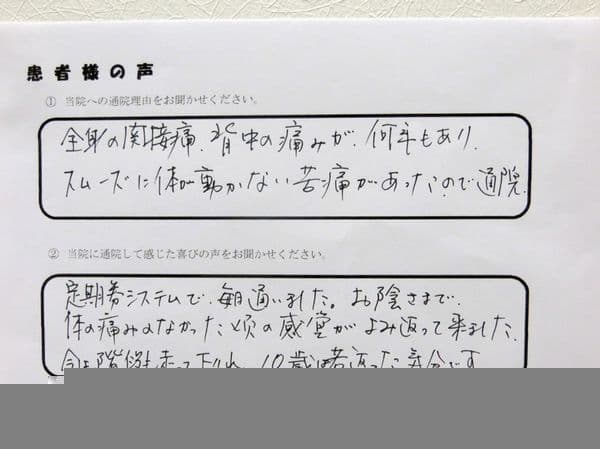 患者様の声
① 当院への通院理由をお聞かせください。
全身の関接痛、背中の痛みが、何年もあり、
スムーズに体が動かない苦痛があったので通院。
② 当院に通院して感じた喜びの声をお聞かせください。
定期券システムで、毎日通いました。お陰さまで、
体の痛みのなかった頃の感覚がよみ返って来ました。
階段も走って 10歳若返った気分です